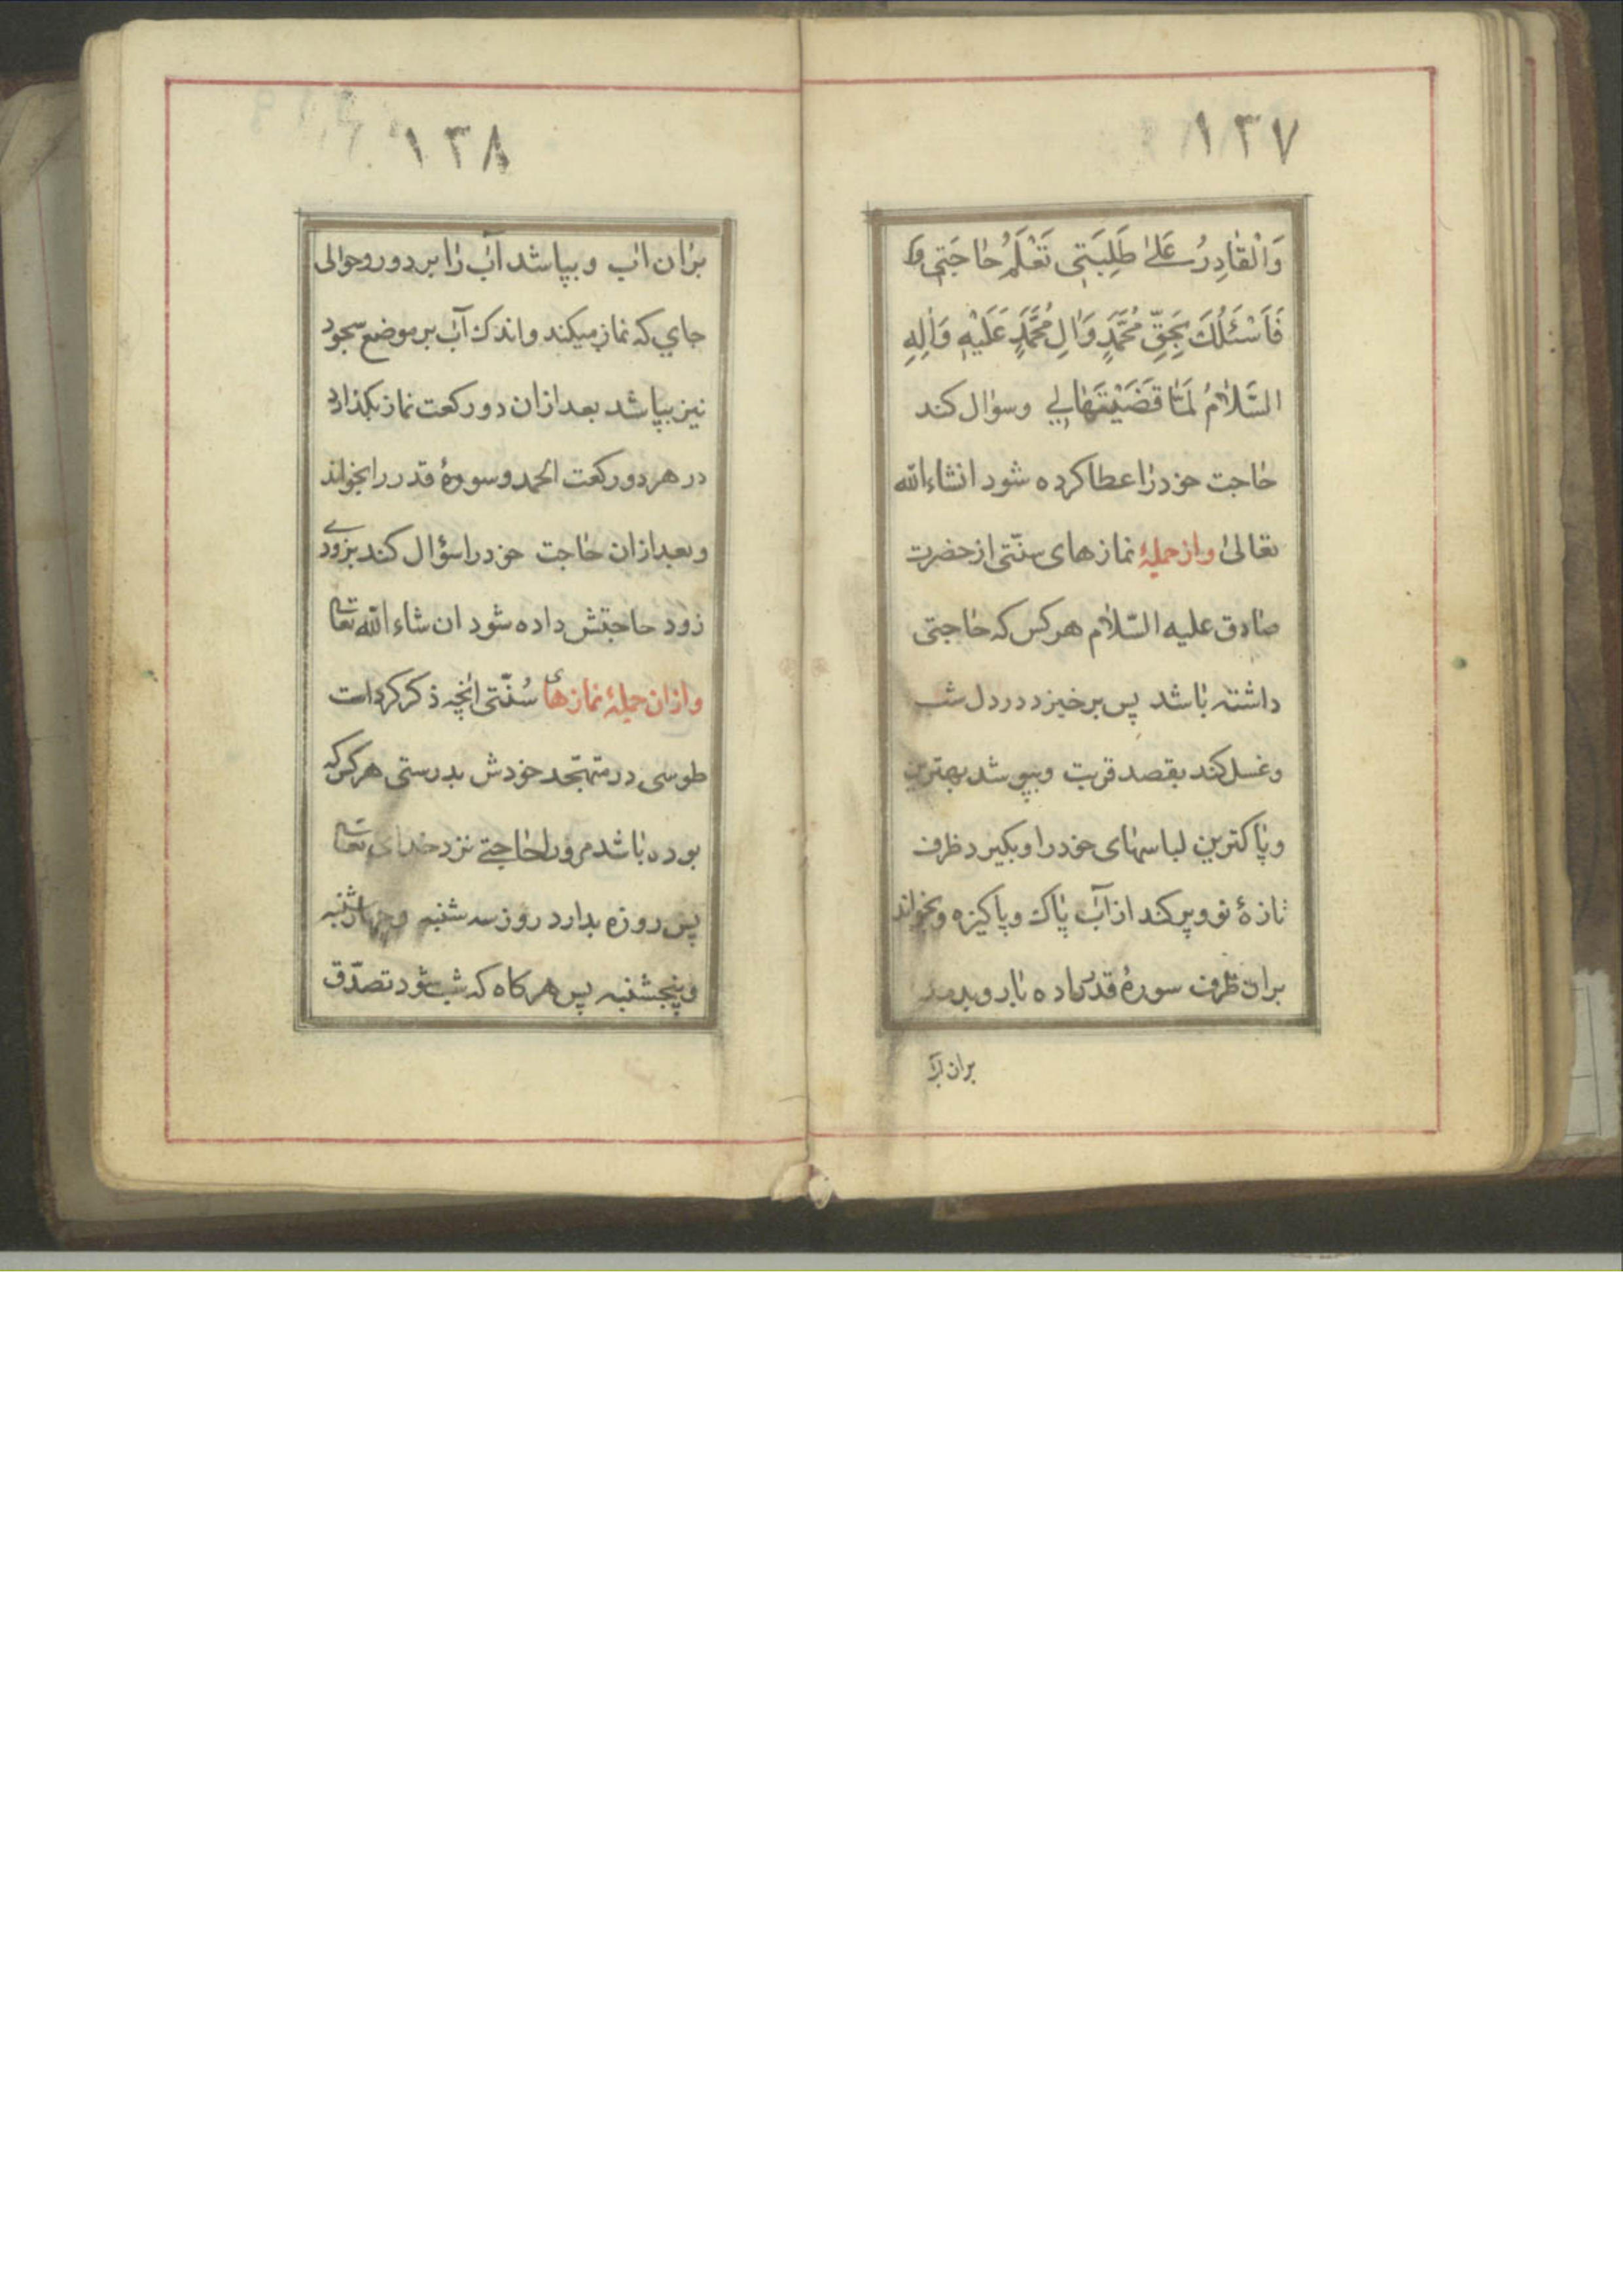 ۱۳۷
وَالْقٰادِرُ عَلىٰ طَلِبَتِي تَعْلَمُ حٰاجَتِي وَ
فَاَسْئَلُكَ بِحَقِّ مُحَمَّدٍ وَاٰلِ مُحَمَّدٍ عَلَيْهِ وَاٰلِهِ
السَّلٰامُ لَمّٰا قَضَيْتَهٰا لِي وسؤال کند
حٰاجت خود رٰا عطا کرده شود انشاءالله
تعالىٰ واز جملهٔ نمازهای سنّتی از حضرت
صٰادق علیه السّلام هر کس که حٰاجتی
داشته بٰاشد پس برخیزد در دل شب
وغسل کند بقصد قربت وبپوشد بهترین
وپٰاکترین لباسهای خود را وبگیرد ظرف
تازهٔ نو و پر کند از آب پٰاك وپاکیزه وبخواند
بران ظرف سورهٔ قدر را ده بٰار وبدمد
بران
۱۳۸
برٰان اٰب وبپاشد آب رٰا بر دور وحوالی
جای که نماز میکند واندك آب بر موضع سجود
نیز بپاشد بعد ازان دو رکعت نماز بکذارد
در هر دو رکعت الحمد وسورهٔ قدر را بخواند
وبعد ازان حٰاجت خود را سؤال کند بزودی
زود حاجتش داده شود ان شاء الله تعا
وازان جملهٔ نمازهای سُنّتی انچه ذکر کرد است
طوسی در متهجّد خودش بدرستی هر کس که
بوده بٰاشد مر ورا حٰاجتی نزد خدای تعا
پس روزه بدارد روز سه شنبه وچهارشنبه
وپنجشنبه پس هر کاه که شب شود تصدّق